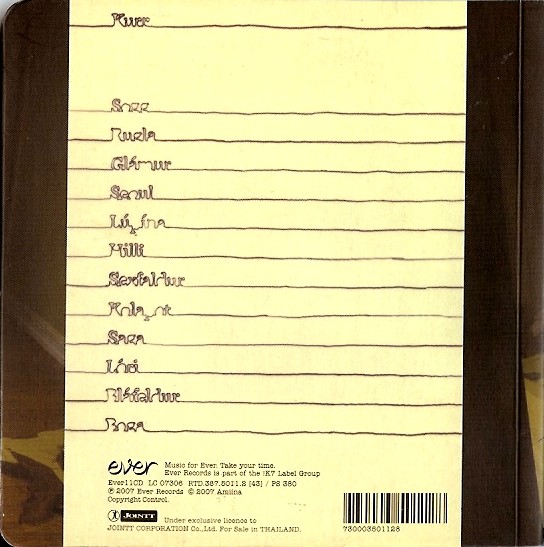 Kurr
Sogg
Rugla
Glámur
Seoul
Lúpína
Hilli
Sexfaldur
Kolapot
Saga
Lóri
Bláfeldur
Boga
ever Music for Ever: Take your time.
Ever Records is part of the !K7 Label Group
Ever11CD LC 07306 RTD.387.5011.2 [43] / PS 380
℗ 2007 Ever Records © 2007 Amiina
Copyright Control.
JOINTT Under exclusive licence to
JOINTT CORPORATION Co.,Ltd. For Sale in THAILAND.
730003801128